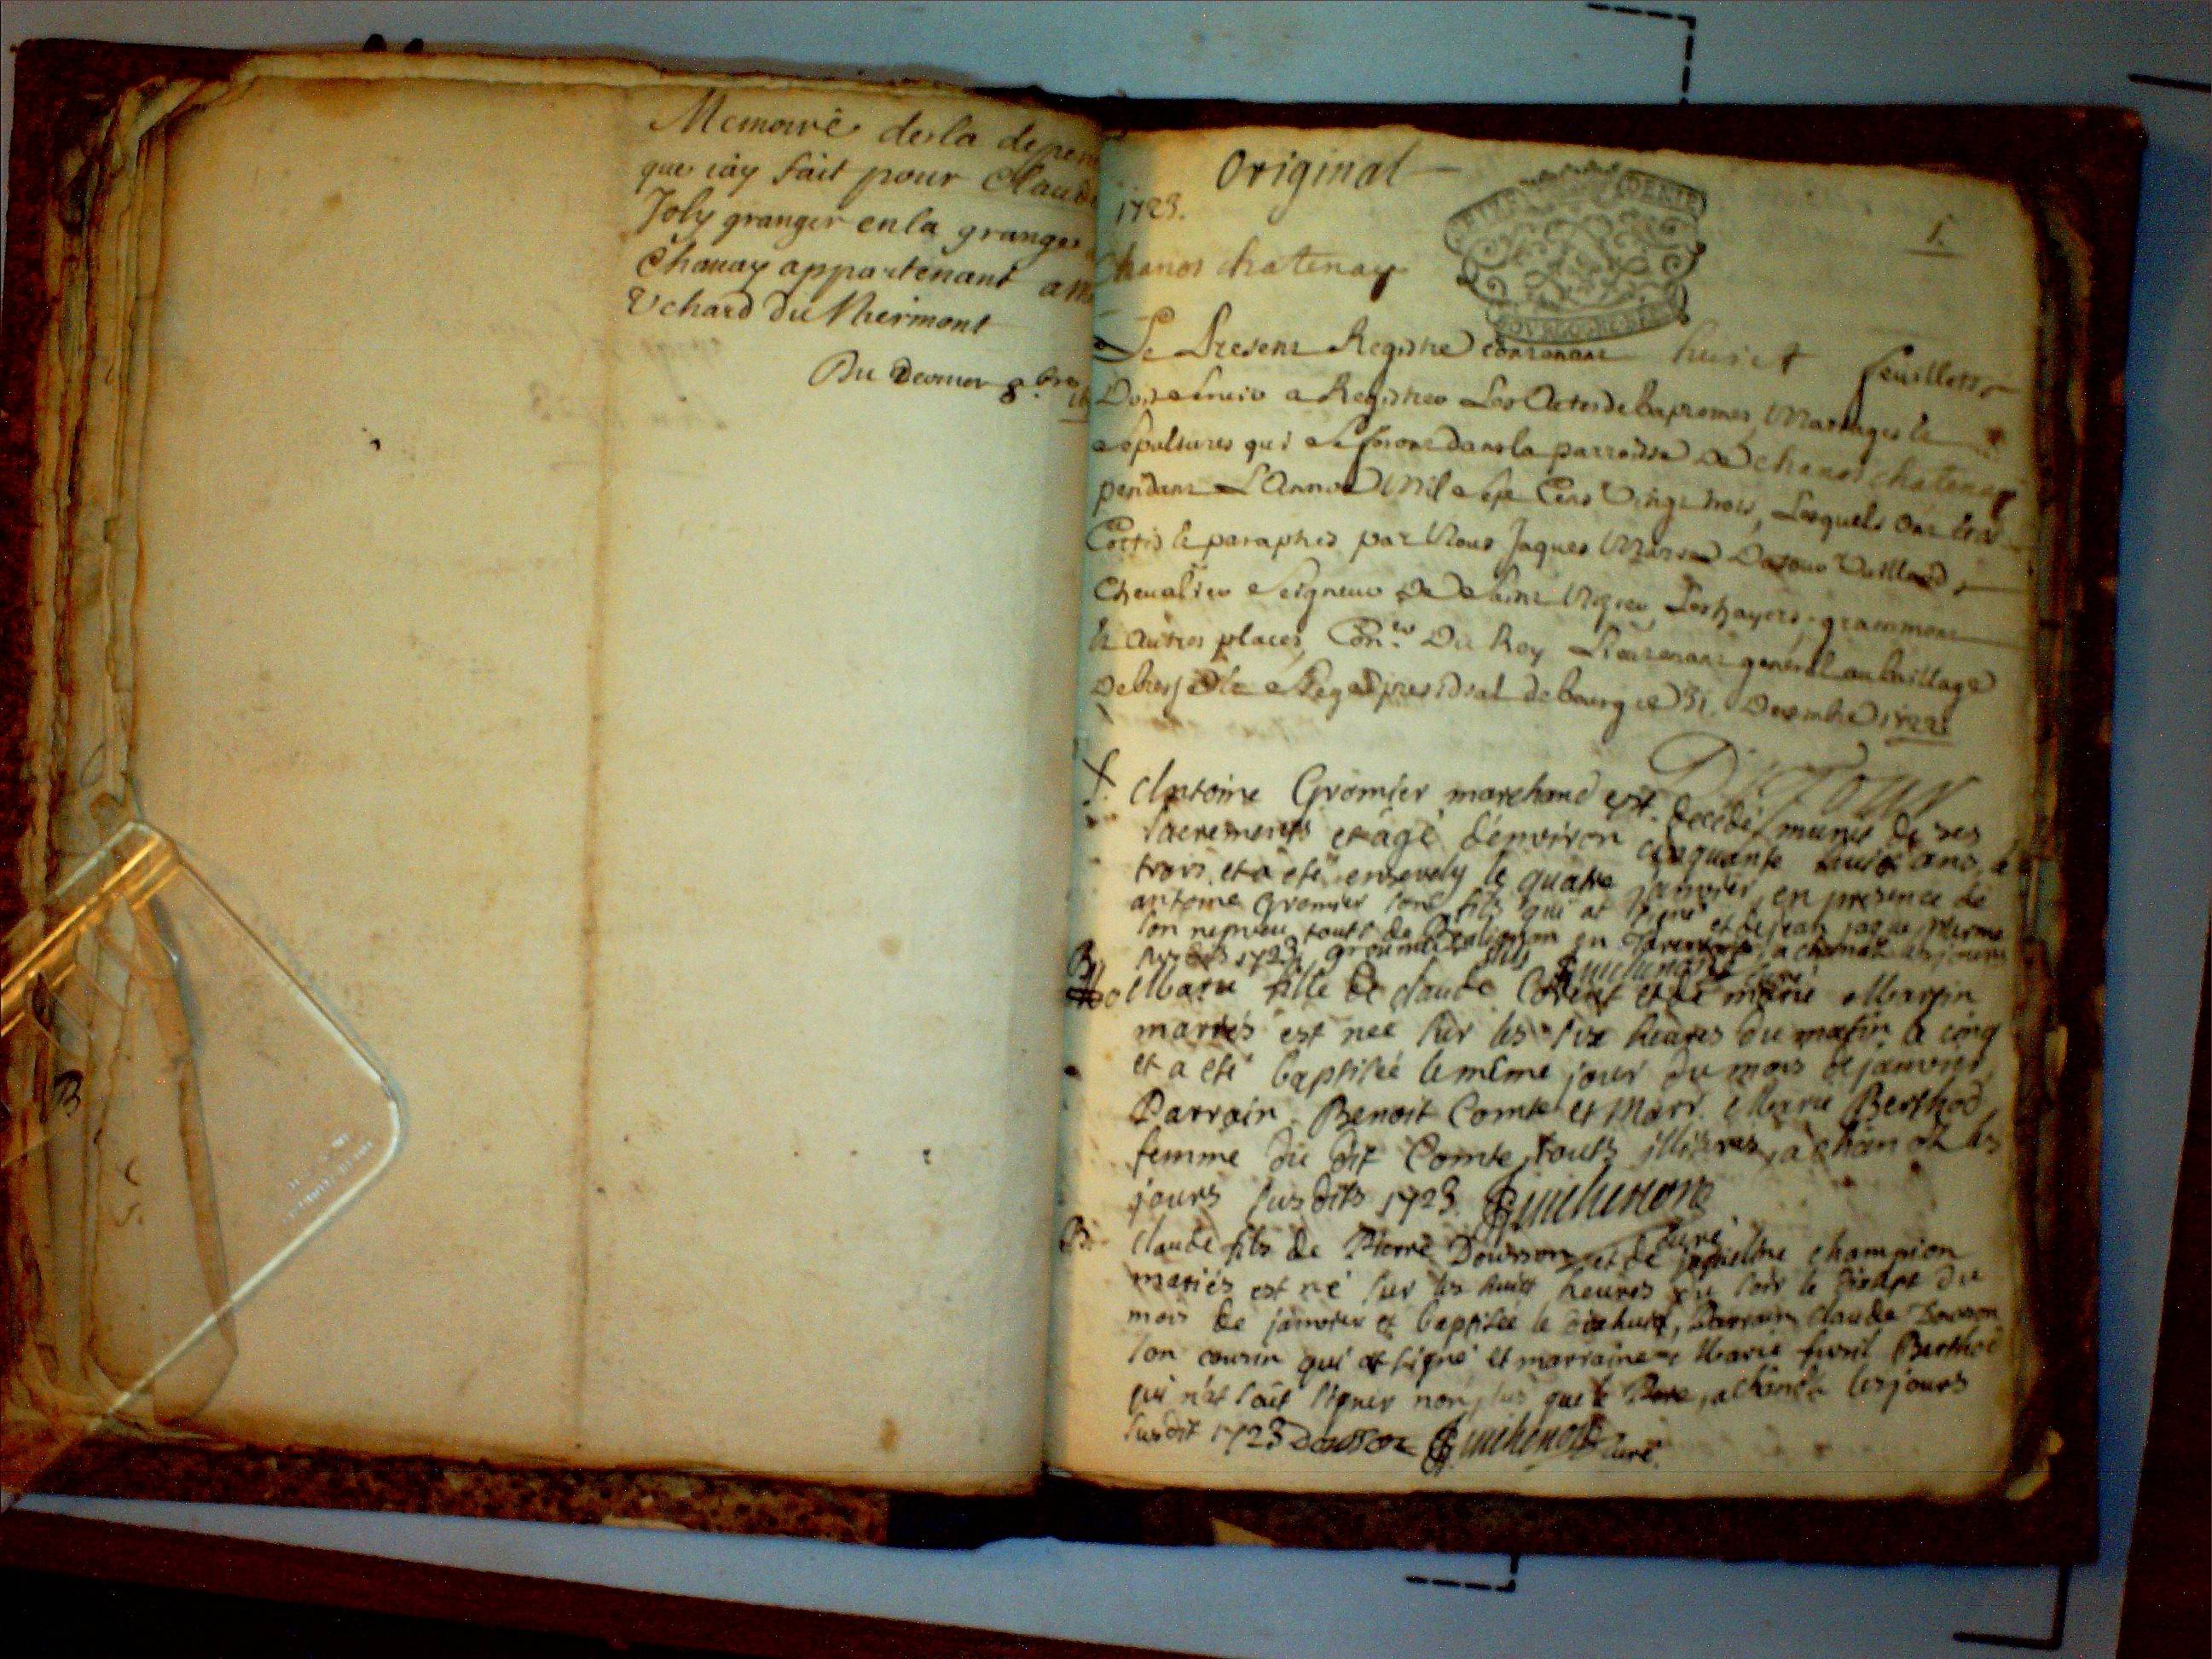 Memoire de la depen
que iay fait pour Claude
Joly granger en la grange
Chanay appartenant a M
Uchard du Miermont
Du Dernier 8.bre
Original
1723.
1.
Chanos chatenay
Le Present Registre contenant huict feuillets
Doit servir a Registrer Les Actes de baptemes, Mariages et
sepultures qui se feront dans la parroisse De chanos chatenay
pendant L'Année Mil sept Cens Vingt trois, Lesquels ont été
Cottés et paraphés par Nous Jaques
Chevalier Seigneur De Saint grammont
et autres places, Con.er Du Roy Lieutenant général au baillage
De bresse et Siege presidial de bourg ce 31. Decembre 1722
S. Antoine Gromier marchand est decedé munis de ses
sacrements et agé d'environ cinquante huict ans, le
trois, et a eté ensevely le quatre janvier, en presence de
antoine Gromier son fils qui at signé et de jean jaque
son nepveu touts de en a chanoz les jours
susdits 1723 gromier fils Guichenon curé
B Marie fille de claude et de marie Martin
mariés est née sur les six heures du matin le cinq
et a eté baptisée le même jour du mois de janvier,
Parrain Benoit Comte et Marr. Marie Berthod
femme du dit Comte, touts illitérés, a chanoz les
jours susdits 1723. Guichenon
curé
B. Claude fils de Pierre Dousson et de champion
mariés est né sur les huict heures du soir le dixsept du
mois de janvier et baptisée le dixhuit, Parrain claude Dousson
son cousin qui at signé et marraine Marie Berthod
qui n'at sçût signer non plus que le Pere, a chanoz les jours
susdit 1723 Dousson Guichenon curé.
B